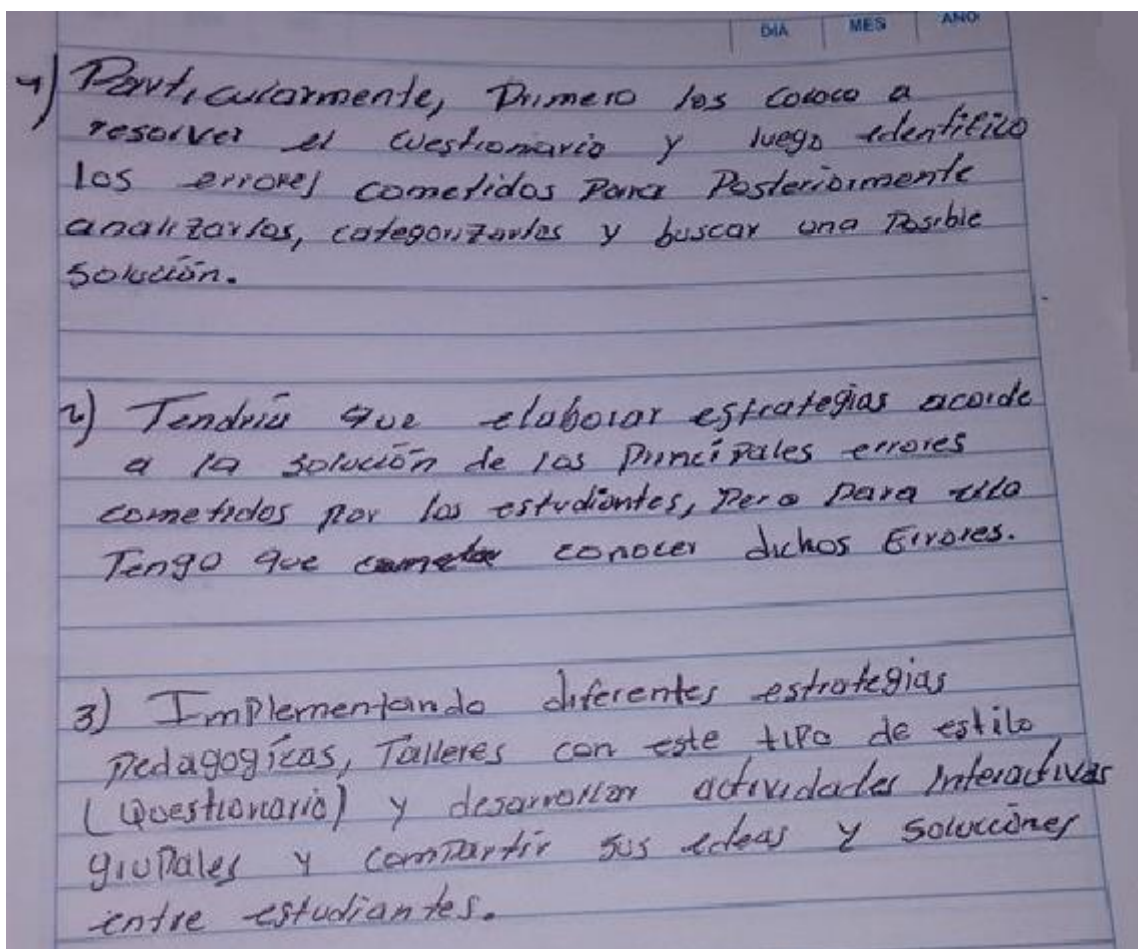 DIA MES AÑO
1) Particularmente, Primero los coloco a
resolver el cuestionario y luego identifico
los errores cometidos Para Posteriormente
analizarlos, categorizarlos y buscar una Posible
solución.
2) Tendría que elaborar estrategias acorde
a la solución de los Principales errores
cometidos por los estudiantes, Pero Para ello
Tengo que conocer dichos Errores.
3) Implementando diferentes estrategias
Pedagogícas, Talleres con este tipo de estilo
(Questionario) y desarrollar actividades Interactivas
grupales y compartir sus ideas y soluciones
entre estudiantes.